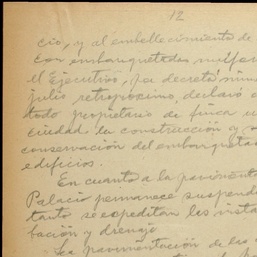 12
cio, y al embellecimiento de
con embanquetados unifor
el Ejecutivo, por decreto núme
julio retropróximo, declaró o
todo propietario de finca en
ciudad la construcción y
conservación del embanquetado
edificios.
En cuanto a la paviment
Palacio permanece suspend
tanto se expeditan las insta
bación y drenaje
La pavimentación de las